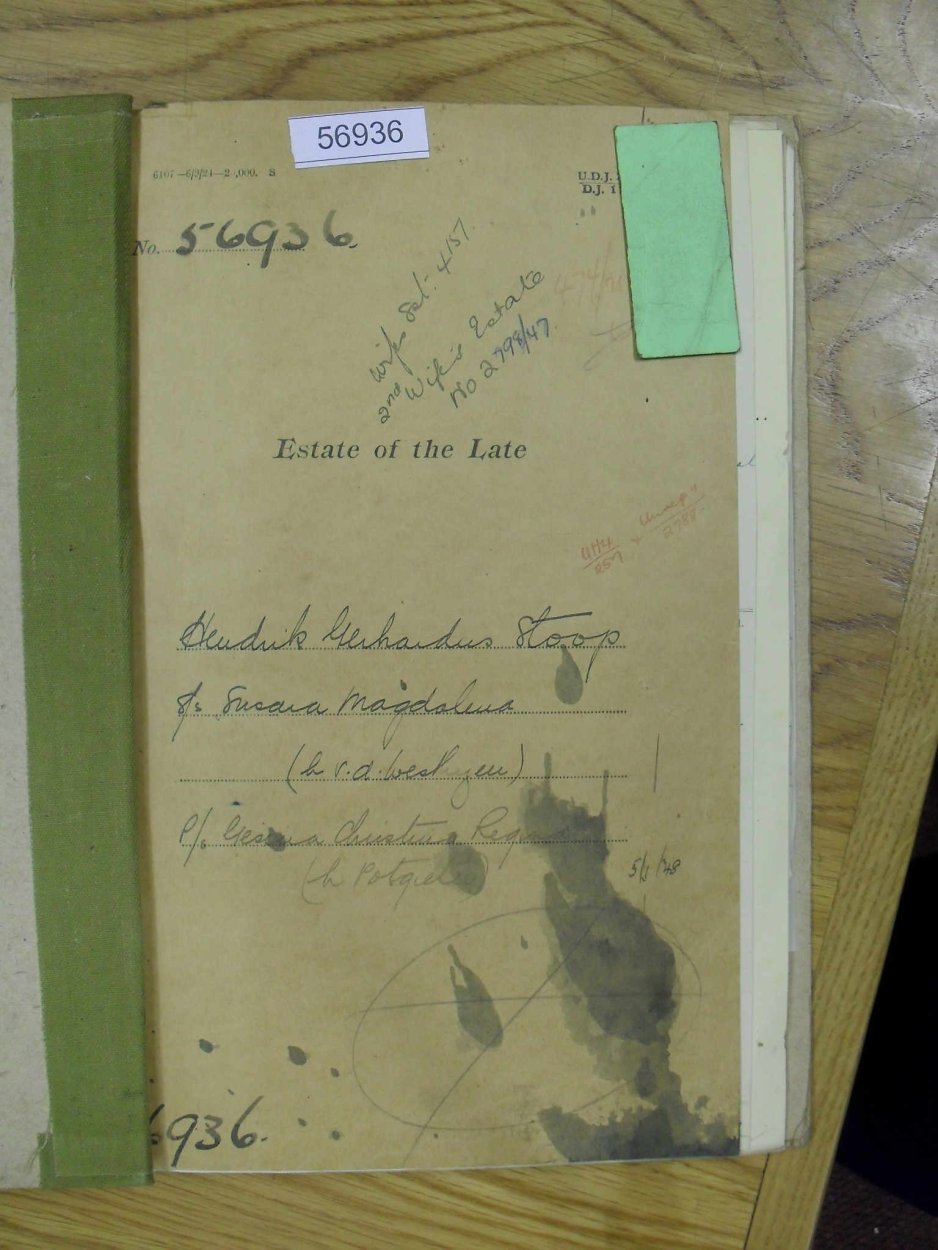 56936
6107—6/9/21—2 ,000. S
U.D.J.
D.J. 1
No. 56936.
Wifes Est. 4157.
2nd Wife's Estate
No 2798/47.
474/
Estate of the Late
2788
Hendrik Gerhardus Stoop
s/s Susara Magdalena
(b v.d. Westhuyzen)
P/s Gesina Christina Regina
(b Potgieter)
5/1/48
6936.